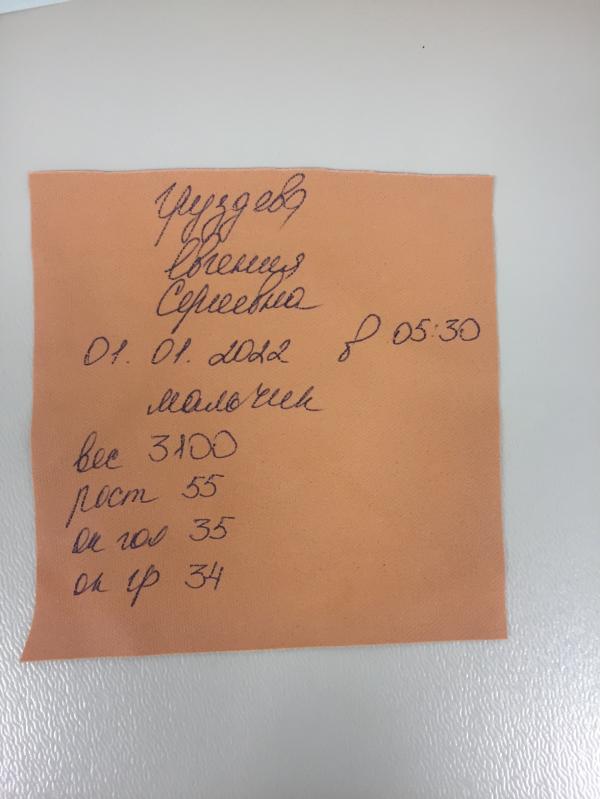 Груздева
Евгения
Сергеевна
01.01.2022 в 05:30
мальчик
вес 3100
рост 55
ок гол 35
ок гр 34